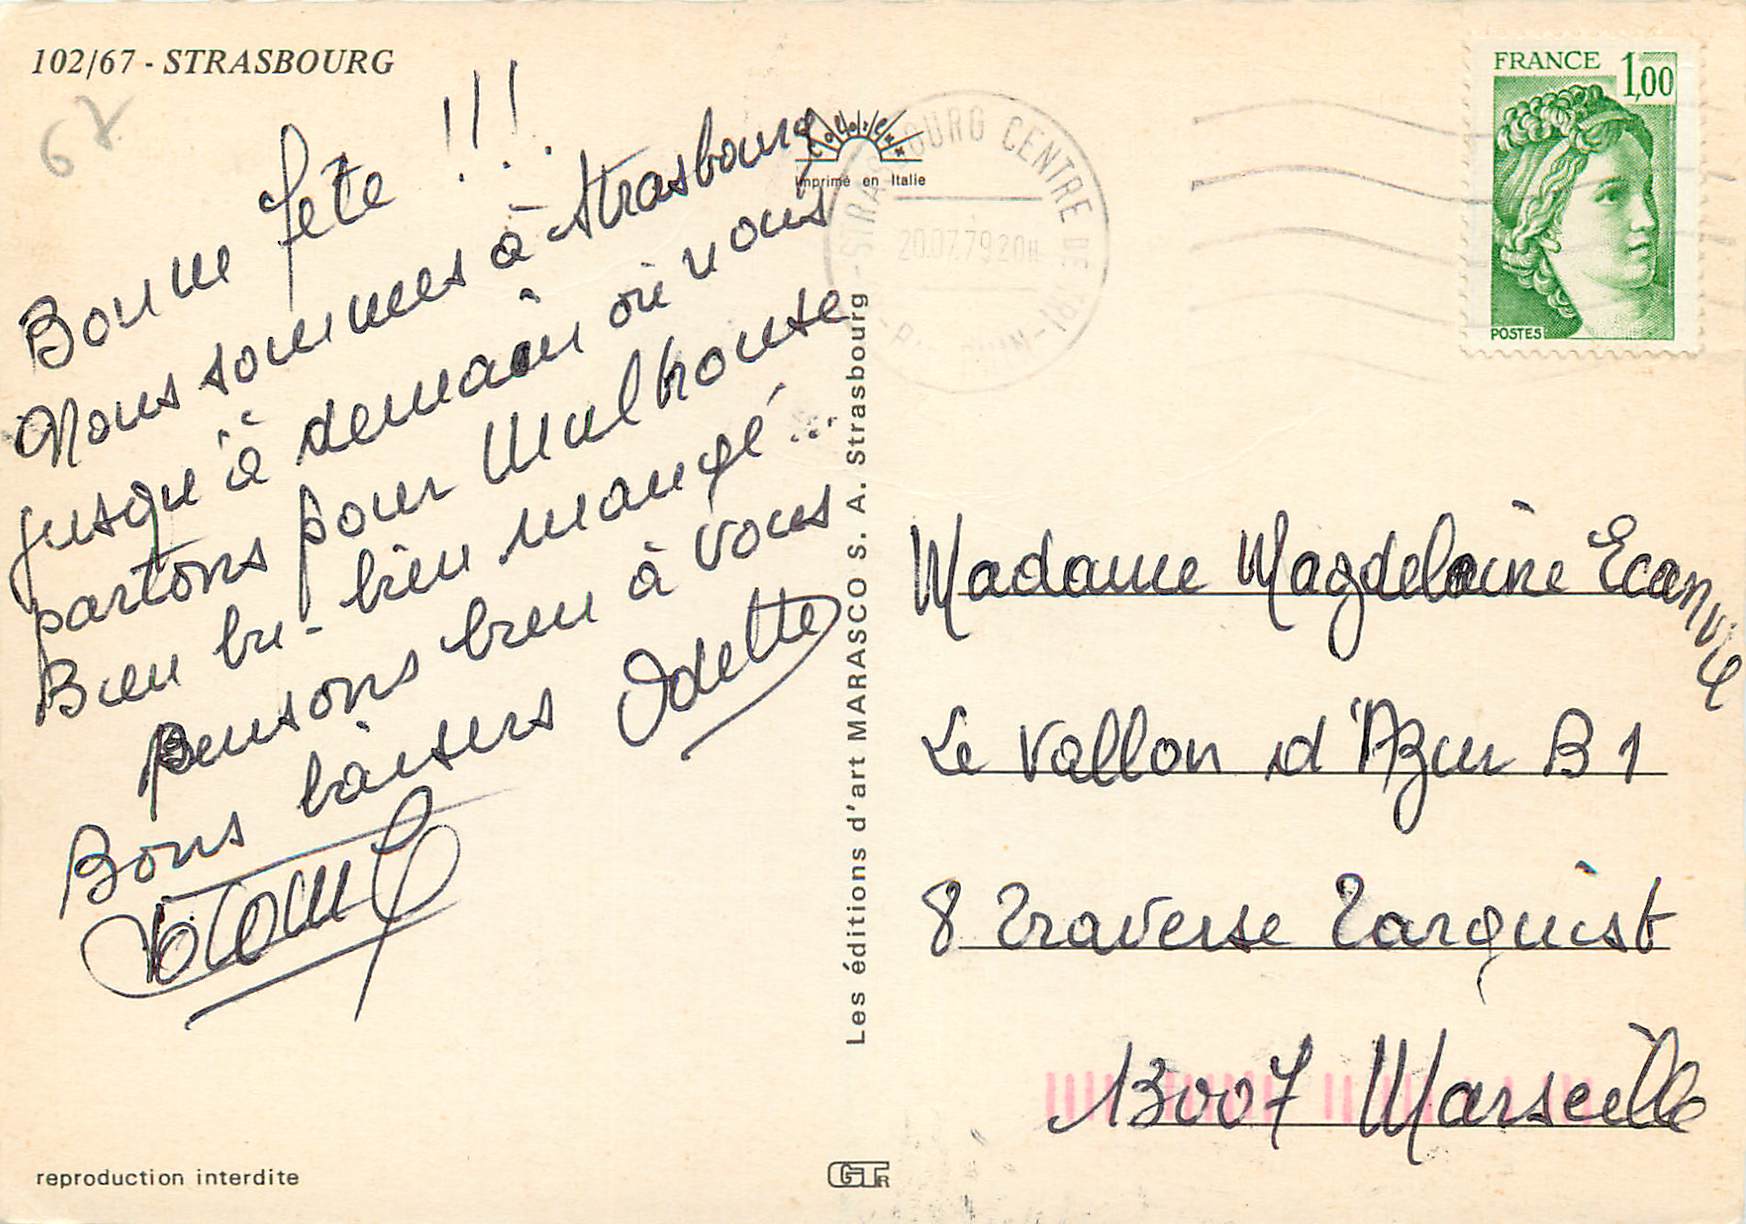 102/67 - STRASBOURG
67
Bonne fête !!!
Nous sommes à Strasbourg
jusqu'à demain où nous
partons pour Mulhouse
Bien bu - bien mangé...
pensons bien à vous
Bons baisers Odette
Imprimé en Italie
STRASBOURG CENTRE DE TRI
20.07.79 20H
FRANCE 1,00
POSTES
Les éditions d'art MARASCO S. A. Strasbourg
Madame Magdelaine
Le Vallon d'Azur B1
8 Traverse Tarquist
13007 Marseille
reproduction interdite